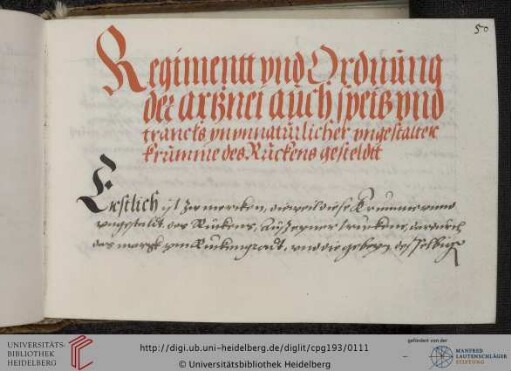 50
Regimentt vnd Ordnung
der artznei auch speiß vnd
trancks vnnatürlicher vngestalter
krümme des Rückens gesteldtt
Erstlich ist zu mercken, dieweil diese Krumme vnnd
vngestaldt, des Rückens, auß
das marck ym Ruckengradt, vnd die
UNIVERSITÄTS-
BIBLIOTHEK
HEIDELBERG
http://digi.ub.uni-heidelberg.de/diglit/cpg193/0111
© Universitätsbibliothek Heidelberg
gefördert von der
MANFRED
LAUTENSCHLÄGER
STIFTUNG